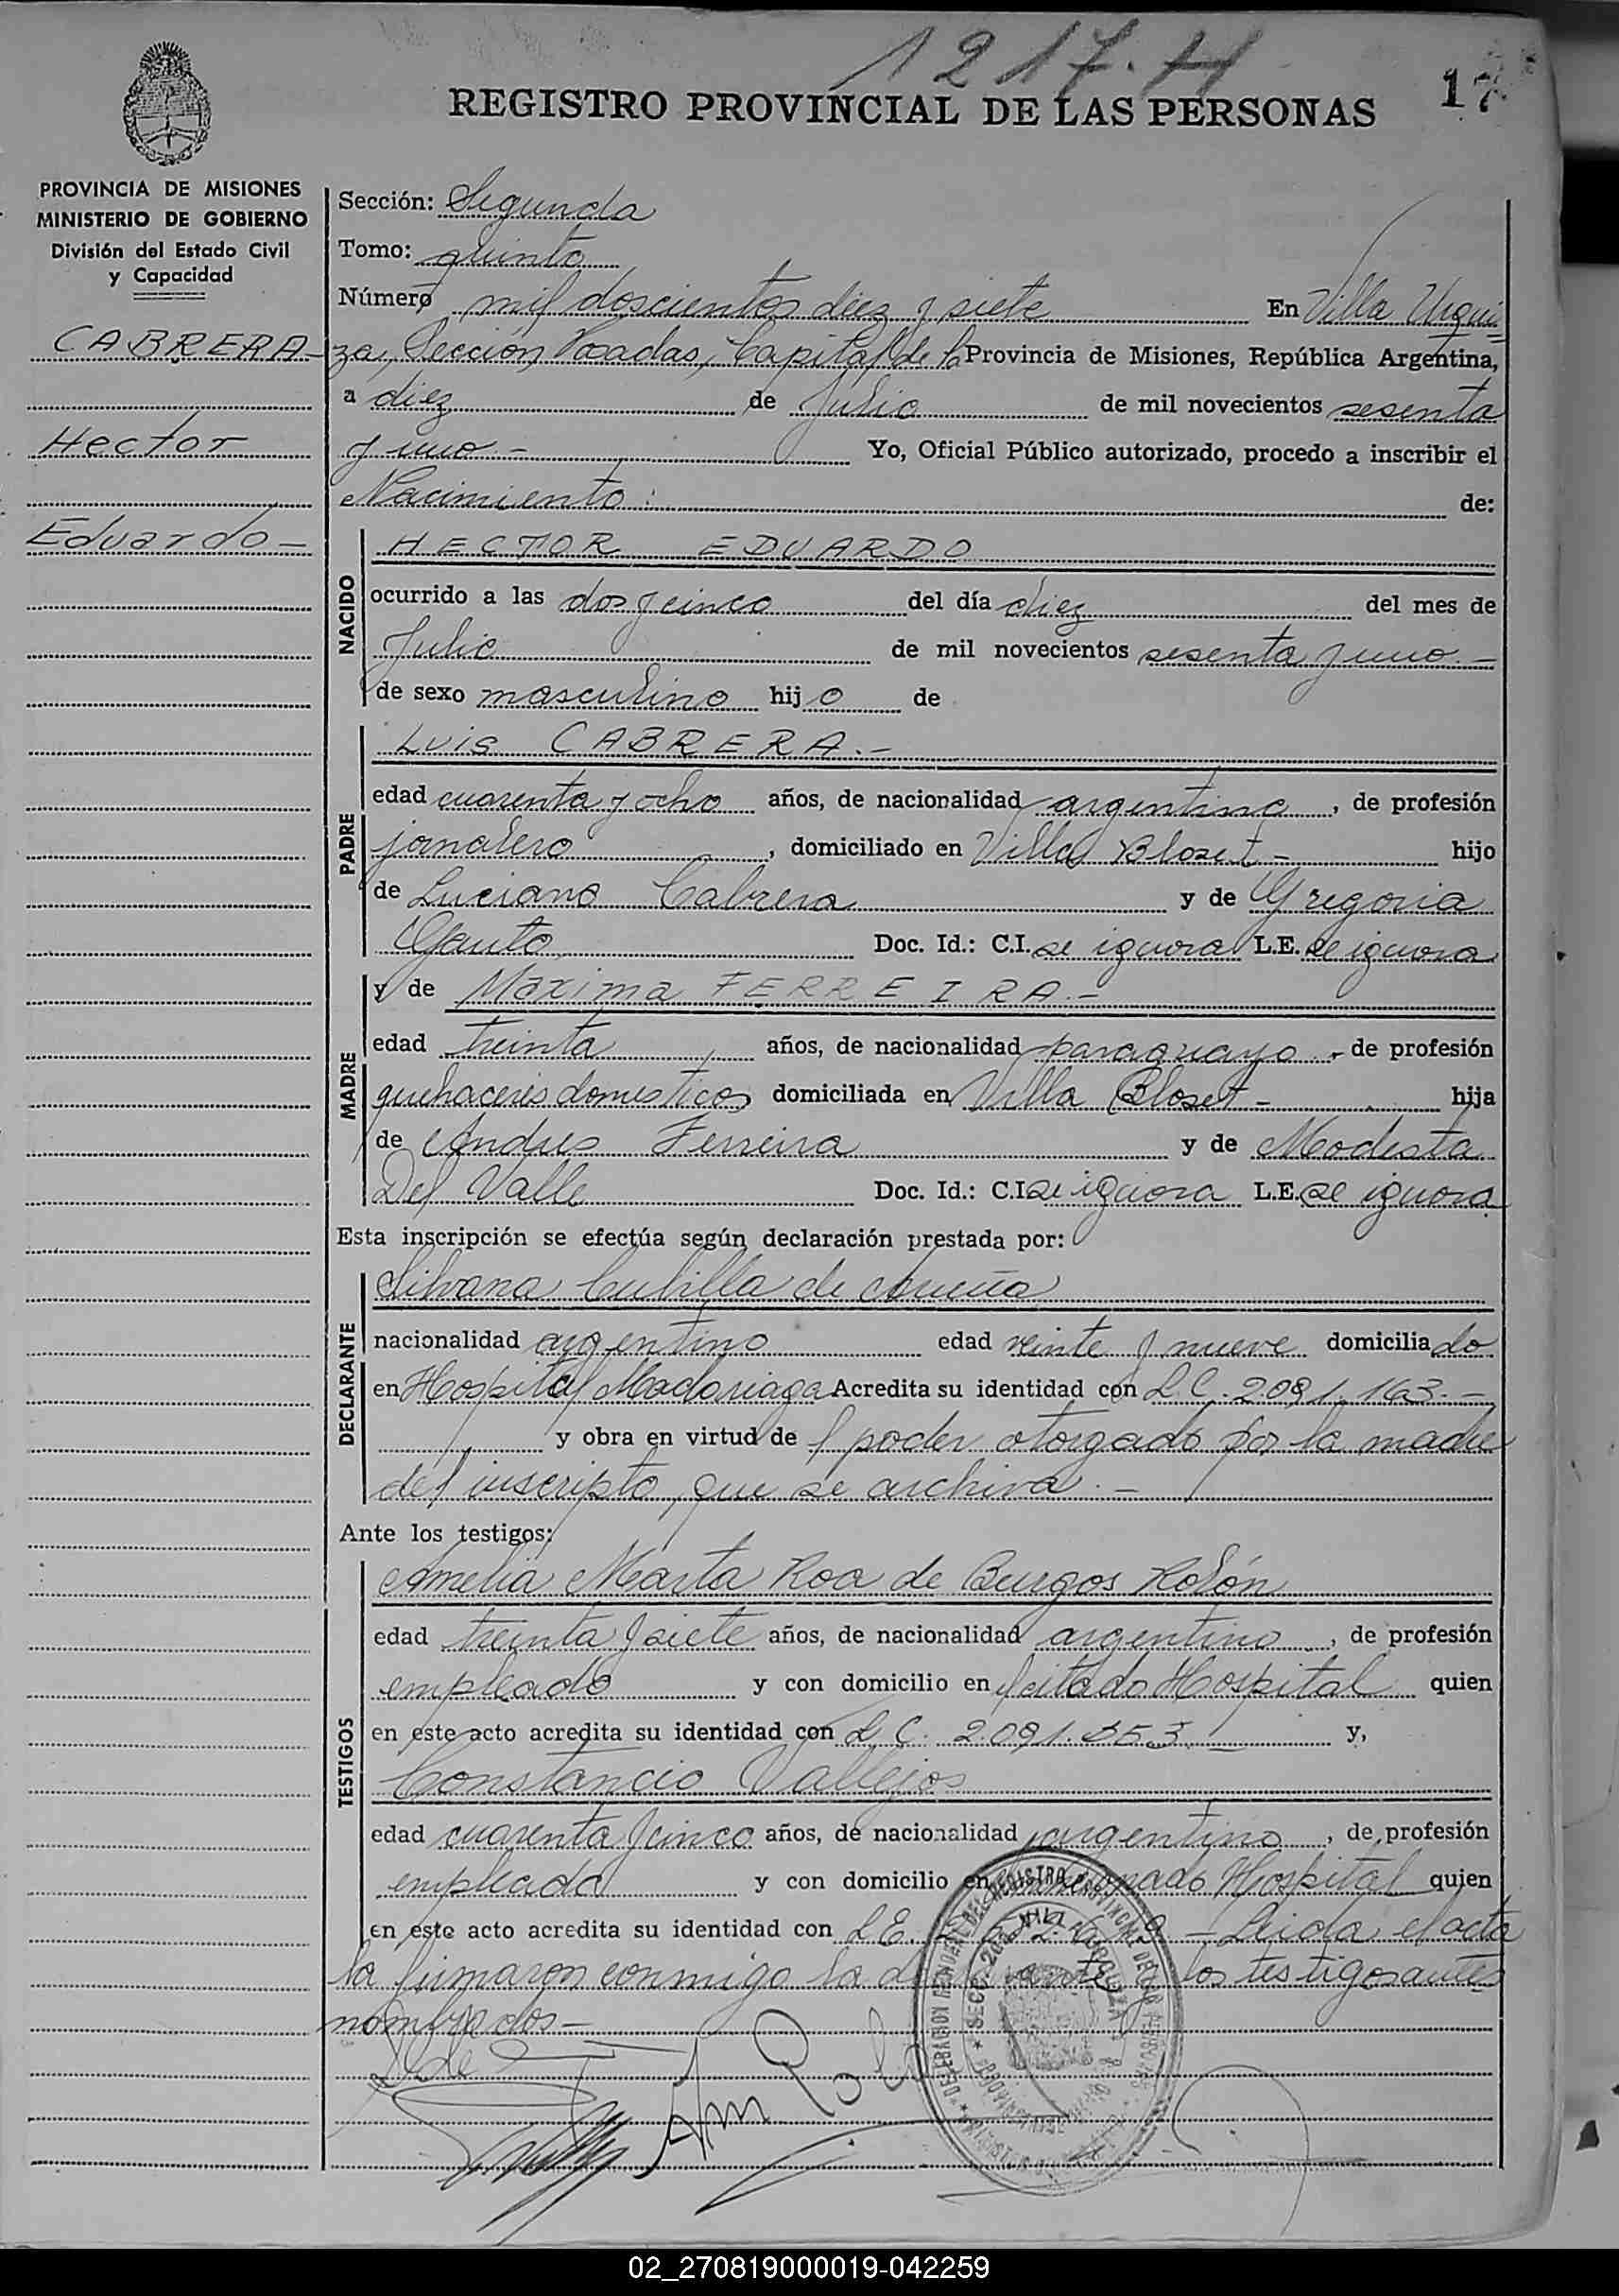 1217.H
17
REGISTRO PROVINCIAL DE LAS PERSONAS
PROVINCIA DE MISIONES
MINISTERIO DE GOBIERNO
División del Estado Civil
y Capacidad
CABRERA-
Hector
Eduardo-
Sección: Segunda
Tomo: quinto
Número mil doscientos diez y siete En Villa Urqui-
za, Sección Posadas, Capital de la Provincia de Misiones, República Argentina,
a diez de Julio de mil novecientos sesenta
y uno.- Yo, Oficial Público autorizado, procedo a inscribir el
Nacimiento: de:
NACIDO
HECTOR EDUARDO
ocurrido a las dos y cinco del día diez del mes de
Julio de mil novecientos sesenta y uno.-
de sexo masculino hijo de
PADRE
Luis CABRERA.-
edad cuarenta y ocho años, de nacionalidad argentino, de profesión
jornalero, domiciliado en Villa Bloset- hijo
de Luciano Cabrera y de Gregoria
Gauto Doc. Id.: C.I. se ignora L.E. se ignora
MADRE
y de Maxima FERREIRA.-
edad treinta años, de nacionalidad paraguayo, de profesión
quehaceres domesticos domiciliada en Villa Bloset- hija
de Andres Ferreira y de Modesta
Del Valle Doc. Id.: C.I. se ignora L.E. se ignora
Esta inscripción se efectúa según declaración prestada por:
DECLARANTE
Silvana Cubilla de
nacionalidad argentino edad veinte y nueve domiciliado
en Hospital Madariaga Acredita su identidad con L.C. 2.091.163.-
y obra en virtud del poder otorgado por la madre
del inscripto, que se archiva.-
Ante los testigos:
TESTIGOS
Amelia Marta Roa de Burgos Rolón
edad treinta y siete años, de nacionalidad argentino, de profesión
empleado y con domicilio en citado Hospital quien
en este acto acredita su identidad con L.C. 2.091.353.- y,
Constancio Vallejos
edad cuarenta y cinco años, de nacionalidad argentino, de profesión
empleado y con domicilio en Hospital quien
en este acto acredita su identidad con L.E. - Leida el acta
la firmaron conmigo la y los testigos antes
nombrados-
02_270819000019-042259